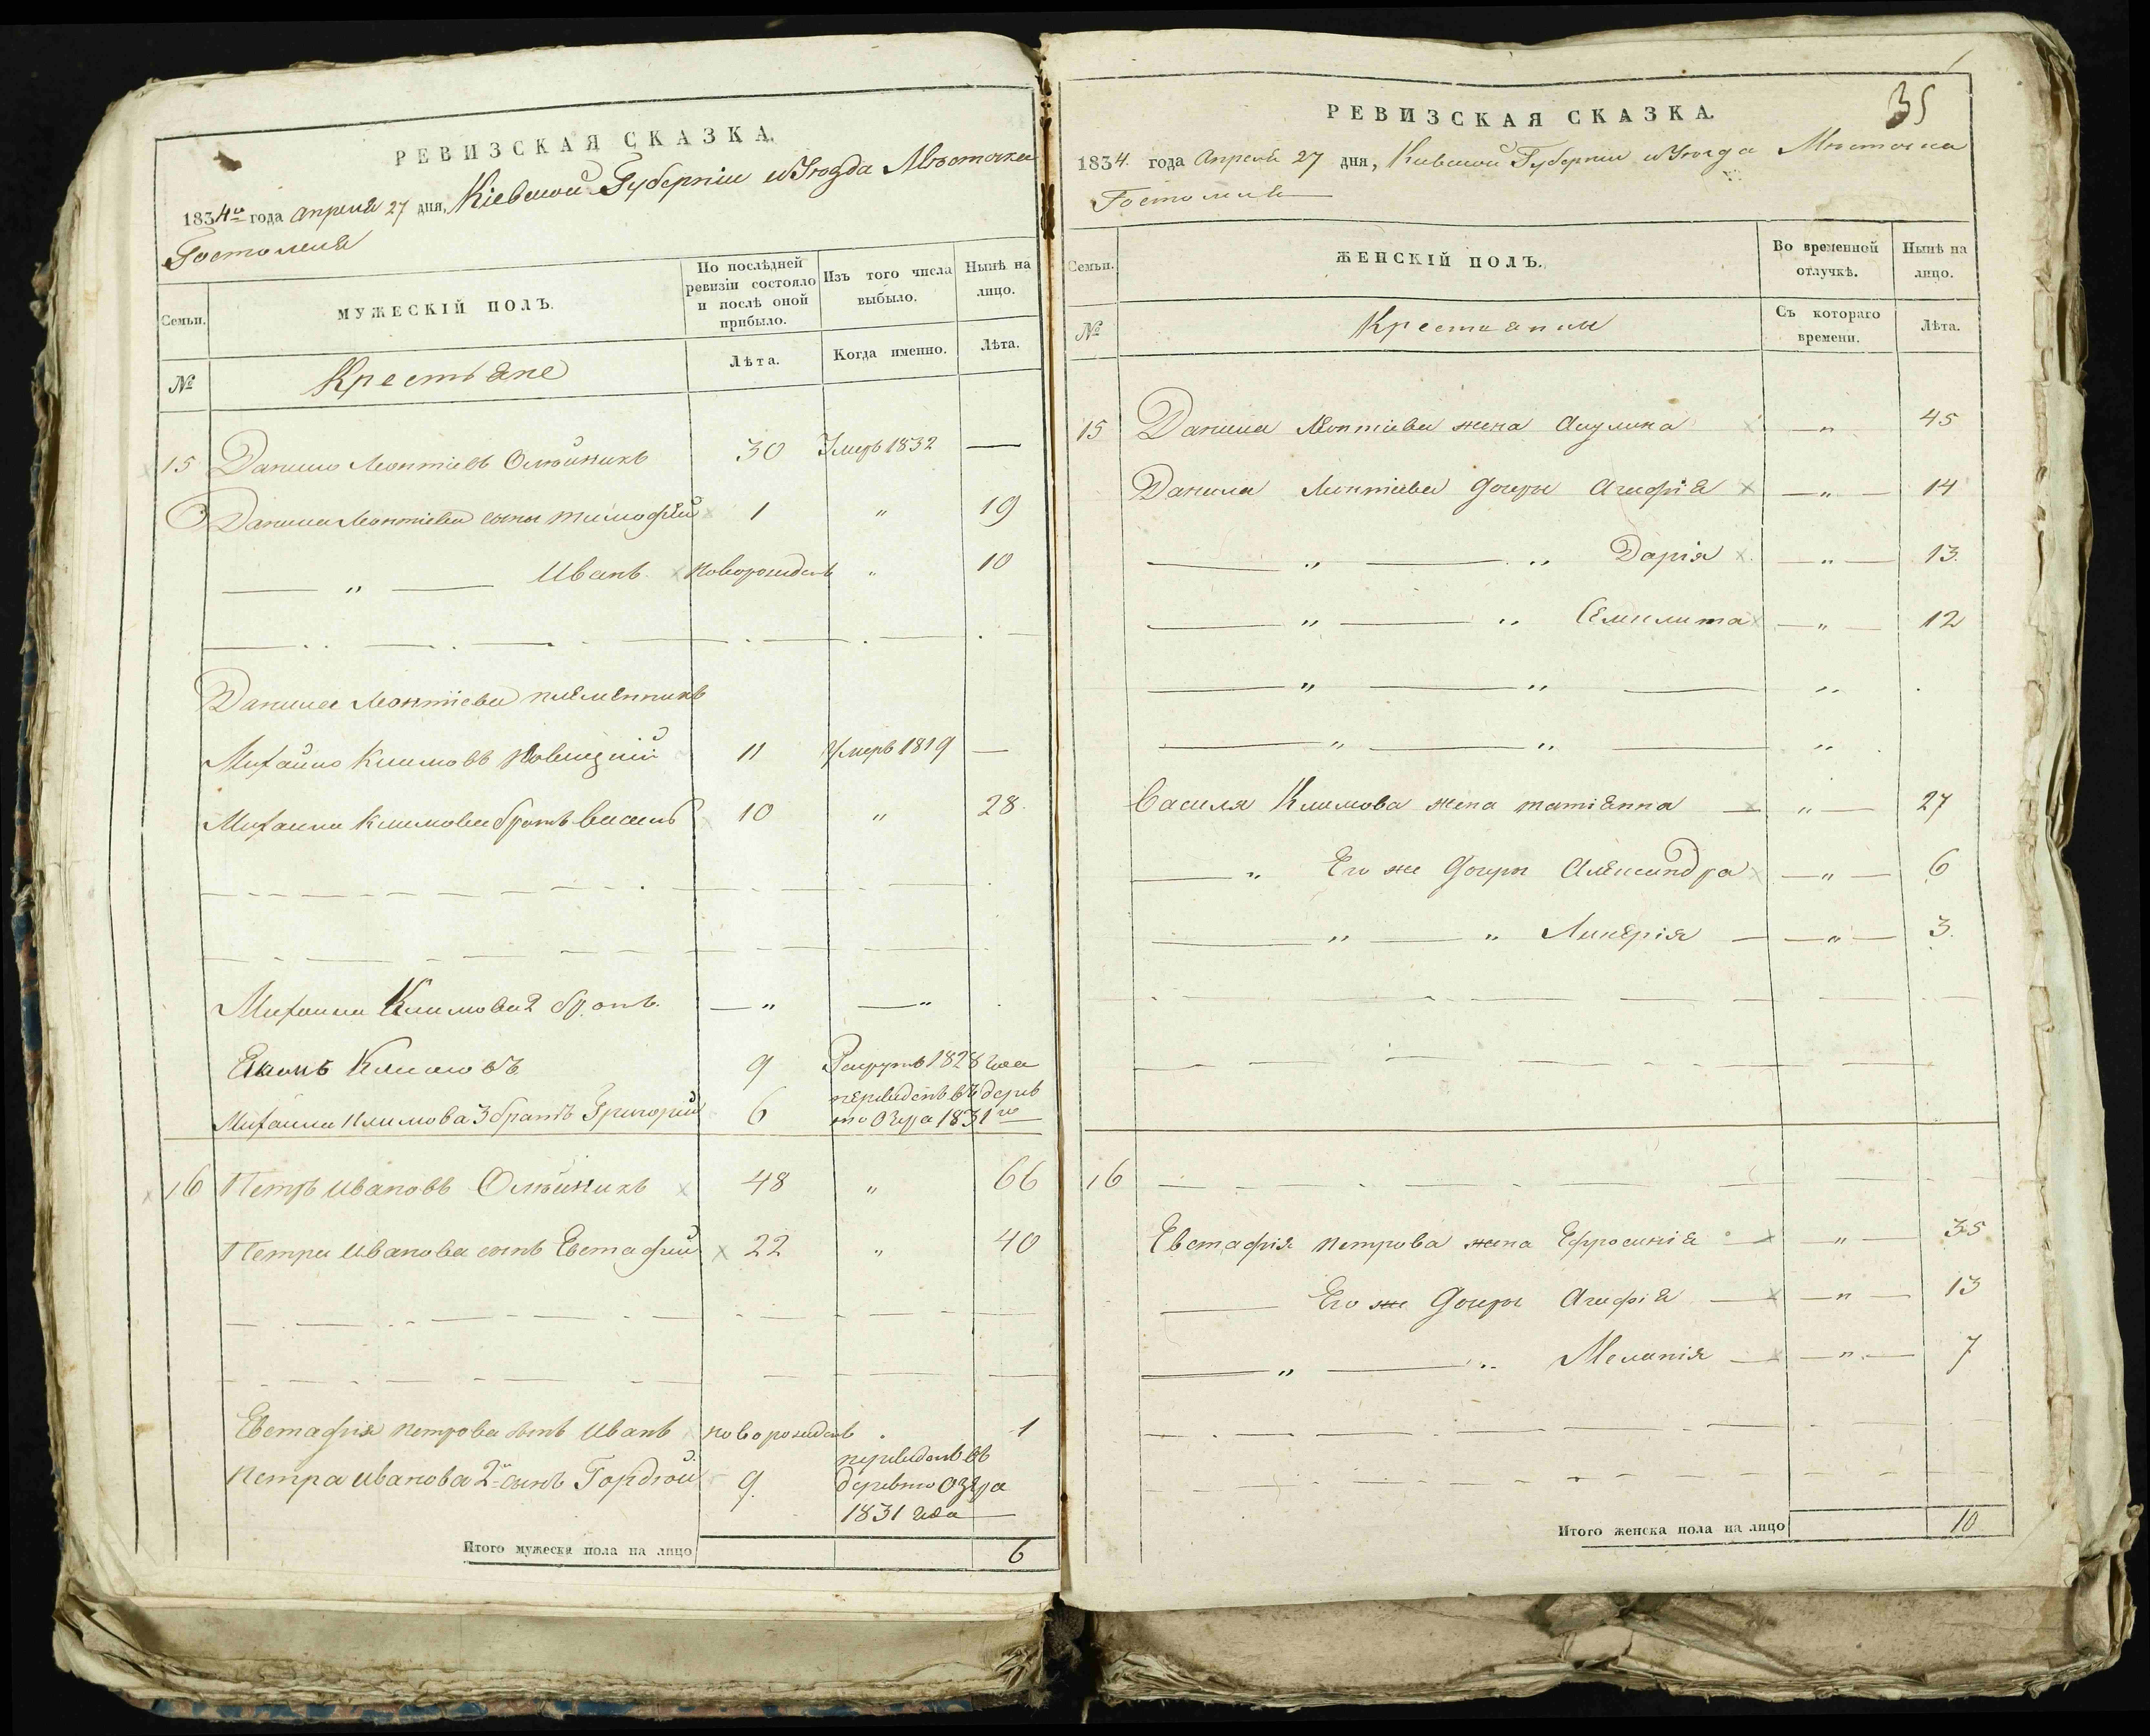 РЕВИЗСКАЯ СКАЗКА.
1834го года апреля 27 дня, Кіевской Губерніи и Уѣзда Мѣстечка
Гостомля
Семьи.
МУЖЕСКІЙ ПОЛЪ.
По послѣдней ревизіи состояло и послѣ оной прибыло.
Изъ того числа выбыло.
Нынѣ на лицо.
№
Крестьяне
Лѣта.
Когда именно.
Лѣта.
15 Данило Леонтіевъ Олѣйникъ 30 Умеръ 1832 —
Данила Леонтіева сыны Тимофей 1 " 19
" Иванъ новорожденъ " 10
Данила Леонтіева племенникъ
Михайло Климовъ 11 Умеръ 1819 —
Михаила Климова братъ Василь 10 " 28
Михаила Климова 2 братъ — " — "
Климовъ 9 Рекрутъ 1828 года
Михаила Климова 3 братъ Григорий 6 переведенъ въ дерев
ню Озера 1831го
16 Петръ Ивановъ Олѣйникъ 48 " 66
Петра Иванова сынъ Евстафий 22 " 40
Евстафія Петрова сынъ Иванъ новорожденъ 1
Петра Иванова 2й сынъ Гордѣй 9 переведенъ въ
деревню Озера
1831 года —
Итого мужеска пола на лицо 6
35
РЕВИЗСКАЯ СКАЗКА.
1834. года Апреля 27 дня, Киевской Губернии и Уѣзда Мѣстечка
Гостомля
Семьи.
ЖЕНСКІЙ ПОЛЪ.
Во временной отлучкѣ.
Нынѣ на лицо.
№
Крестьянки
Съ котораго времени.
Лѣта.
15 Данила Леонтиева жена Акулина — " 45
Данила Леонтиева дочери Агафія — " — 14
" " Дарія — " — 13
" " — " — 12
" " "
" " "
Василя Климова жена татіанна — " — 27
" Его же дочери Александра — " — 6
" " Лукерія — — " — 3
16
Евстафія Петрова жена Ефросинія — " — 35
Его же дочери Агафія — — " — 13
" " Меланія — — " — 7
Итого женска пола на лицо 10